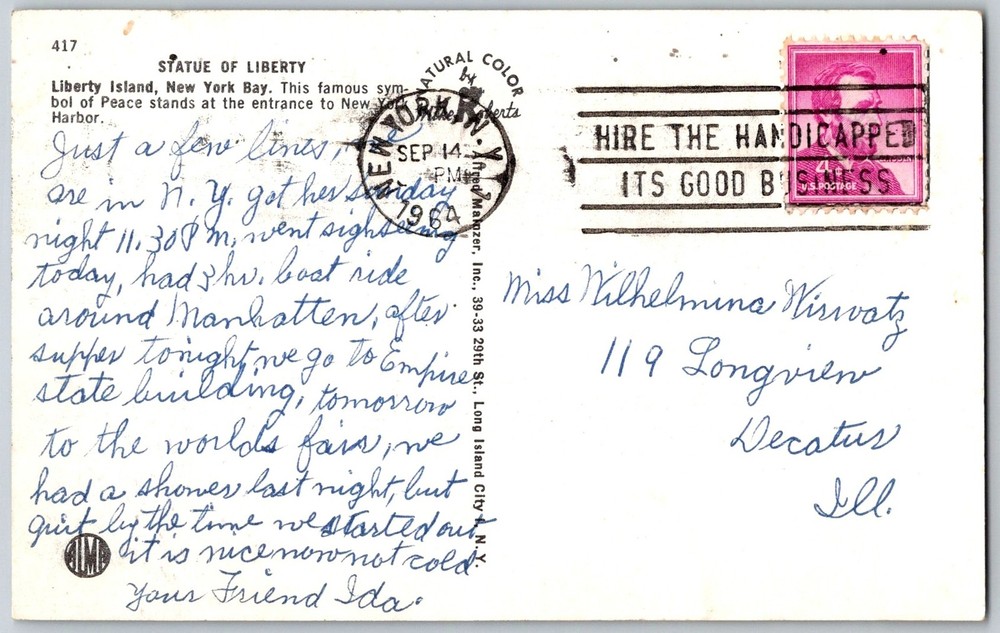 417
STATUE OF LIBERTY
Liberty Island, New York Bay. This famous sym-
bol of Peace stands at the entrance to New York
Harbor.
NATURAL COLOR
by
NEW YORK, N.Y.
SEP 14
PM
1964
HIRE THE HANDICAPPED
ITS GOOD BUSINESS
4¢
LINCOLN
U.S. POSTAGE
Just a few lines, we
are in N. Y. got her sunday
night 11.30 P m, went sightseeing
today, had 3 hr. boat ride
around Manhatten, after
supper tonight we go to Empire
state building, tomorrow
to the worlds fair, we
had a shower last night, but
quit by the time we started out
it is nice now not cold
Your Friend Ida.
Alfred Mainzer, Inc., 39-33 29th St., Long Island City 1, N. Y.
ALMA
Miss Wilhelmina Wiswatz
119 Longview
Decatur
Ill.